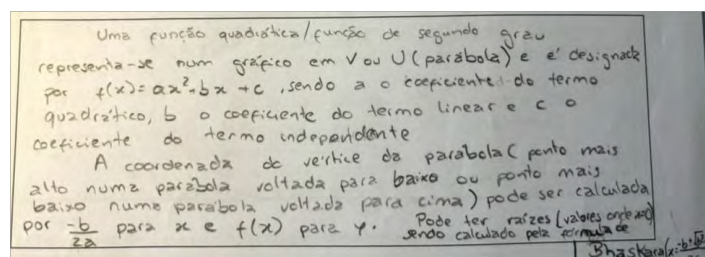 Uma função quadrática/função de segundo grau
representa-se num gráfico em V ou U (parábola) e é designada
por f(x)=ax²+bx+c, sendo a o coeficiente do termo
quadrático, b o coeficiente do termo linear e c o
coeficiente do termo independente
A coordenada do vértice da parábola (ponto mais
alto numa parábola voltada para baixo ou ponto mais
baixo numa parábola voltada para cima) pode ser calculada
por -b/2a para x e f(x) para y. Pode ter raízes (valores onde
sendo calculado pela fórmula de
Bhaskara